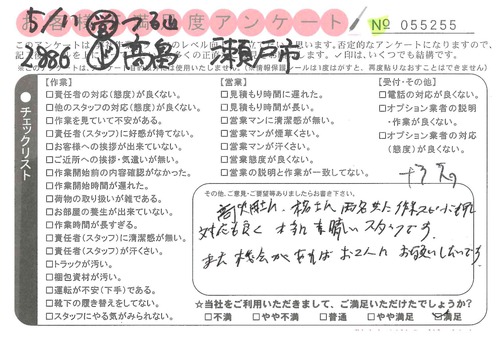 5/11 営 つる山
お客様満足度アンケート
№ 055255
1986 高島 瀬戸市
【作業】
□責任者の対応(態度)が良くない。
□他のスタッフの対応(態度)が良くない。
□作業を見ていて不安がある。
□責任者(スタッフ)に好感が持てない。
□お客様への挨拶が出来ていない。
□ご近所への挨拶・気遣いが無い。
□作業開始前の内容確認がなかった。
□作業開始時間が遅れた。
□荷物の取り扱いが雑である。
□お部屋の養生が出来ていない。
□作業時間が長すぎる。
□責任者(スタッフ)に清潔感が無い。
□責任者(スタッフ)が汗くさい。
□トラックが汚い。
□梱包資材が汚い。
□運転が不安(下手)である。
□靴下の履き替えをしてない。
□スタッフにやる気がみられない。
【営業】
□見積もり時間に遅れた。
□見積もり時間が長い。
□営業マンに清潔感が無い。
□営業マンが煙草くさい。
□営業マンが汗くさい。
□営業態度が良くない。
□営業の説明と作業が一致してない。
【受付・その他】
□電話の対応が良くない。
□オプション業者の説明
・作業が良くない。
□オプション業者の対応
(態度)が良くない。
チェックリスト
その他、ご意見・ご要望等ありましたらお書き下さい。
対応も良く 本当に素晴しいスタッフです。
また機会があれば お二人に お願いしたいです
★当社をご利用いただきまして、ご満足いただけたでしょうか?
□不満 □やや不満 □普通 □やや満足 ☑満足